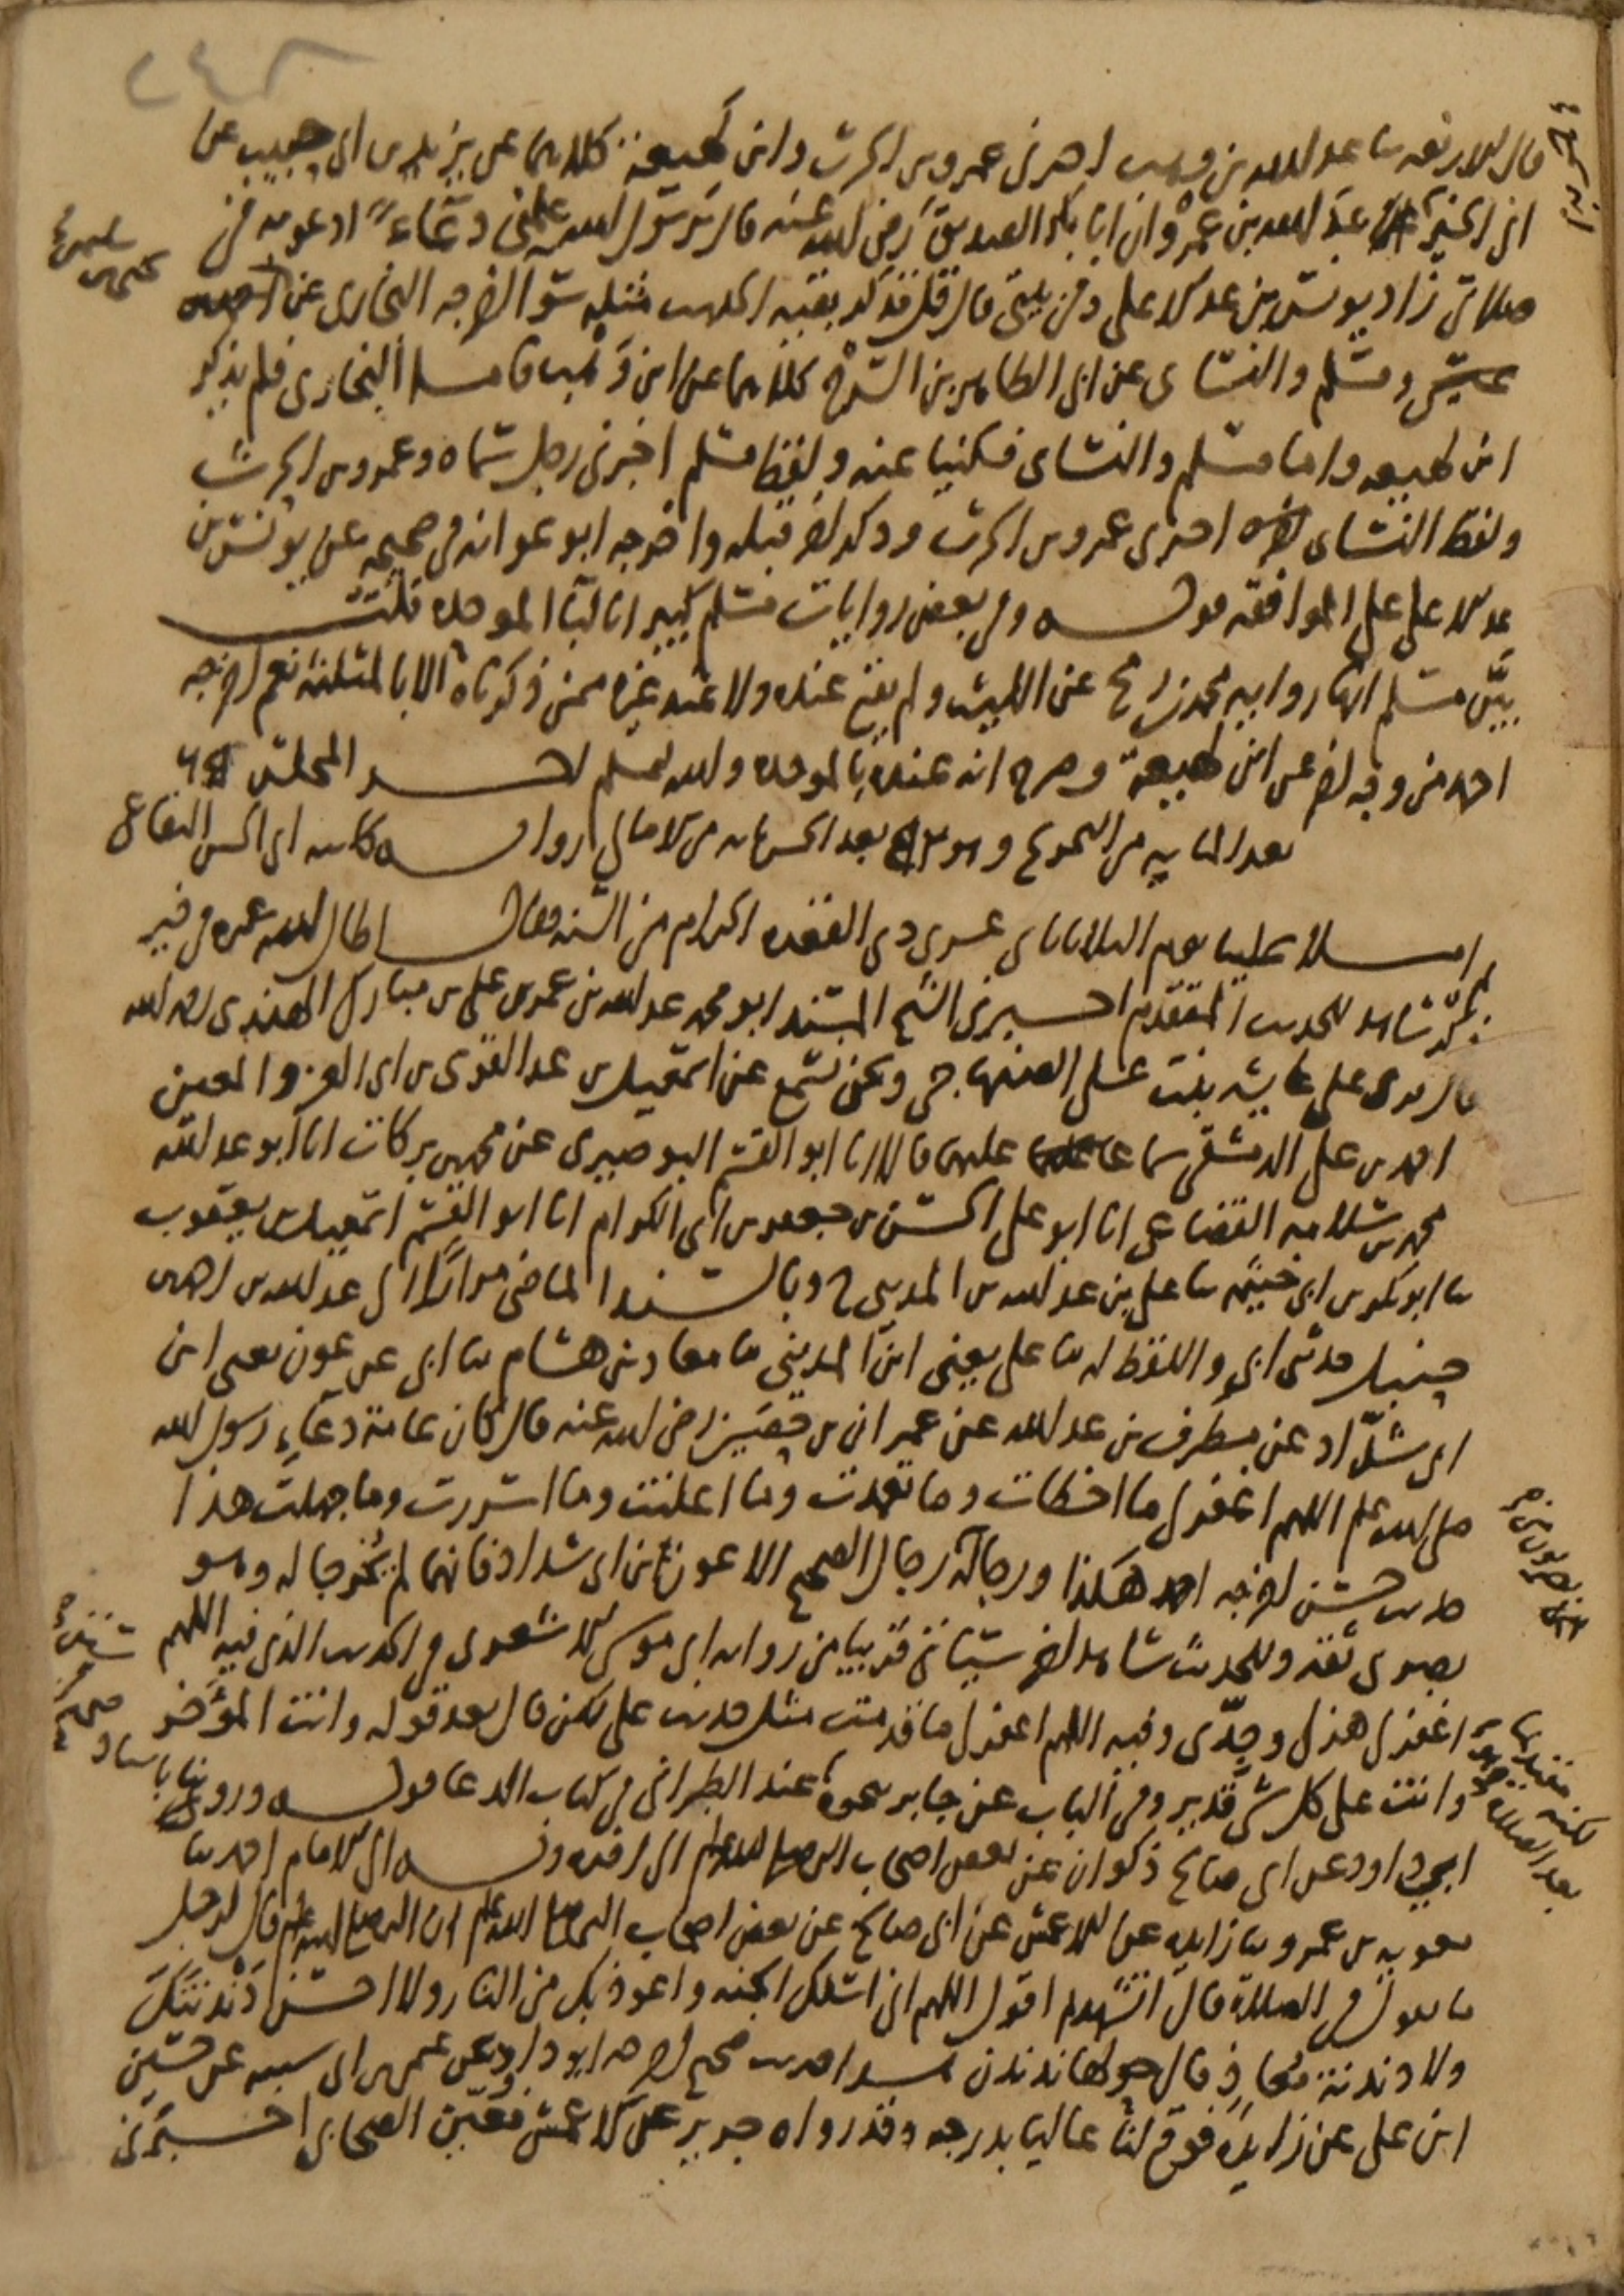 ٢٤٢
قال الاربعه ثنا عبد الله بن وهب اخبرني عمرو بن الحرث وابن لهيعة كلاهما عن يزيد بن ابي حبيب عن
ابي الخير عن عبد الله بن عمرو ان ابا بكر الصديق رضي الله عنه قال يرسول الله علمني دعاءً ادعو به في
صلاتي زاد يونس بن عبد الاعلى وفي بيتي قال قل فذكر بقيه الحديث مثله سوا اخرجه البخاري عن
ومسلم والنسائي عن ابي الطاهر بن السرح كلاهما عن ابن وهب فاما البخاري فلم يذكر
ابن لهيعه واما مسلم والنسائي فكنيا عنه ولفظ مسلم اخبرني رجل سماه وعمرو بن الحرث
ولفظ النسائي اخبرني عمرو بن الحرث وذكر اخر قبله واخرجه ابو عوانه في صحيحه عن يونس بن
عبد الاعلى على الموافقه قوله وفي بعض روايات مسلم كبيرا بالبا الموحده قلت
بيّن مسلم انها روايه محمد بن رمح عن الليث ولم يقع عنده ولا عند غيره ممن ذكرناه الا بالمثلثة نعم اخرجه
احمد من وجه اخر عن ابن لهيعة وصرح انه عنده بالموحده والله اعلم اخر المجلس
بعد المايه من التخريج وهو بعد الخمسمايه من الامالي رواية كاتبه ابي الحسن البقاعي
املا علينا يوم الثلاثا ثاني عشري ذي القعده الحرام من السنه فقال اطال الله عمره في خير
شاهد للحديث المتقدم اخبرني الشيخ المسند ابو محمد عبد الله بن عمر بن علي بن مبارك الهندي رحمه الله
قال قرئ على عايشه بنت علي الصنهاجي ونحن نسمع عن اسمعيل بن عبد القوي بن ابي العز والمعين
احمد بن علي الدمشقي سماعا عليهما قالا انا ابو القسم البوصيري عن محمد بن بركات انا ابو عبد الله
محمد بن سلامه القضاعي انا ابو علي الحسن بن جعفر بن ابي الكرام انا ابو القسم اسمعيل بن يعقوب
ثنا ابو بكر بن ابي خيثمه ثنا علي بن عبد الله بن المديني ح وبالسند الماضي مرارا الى عبد الله بن احمد بن
حنبل حدثني ابي واللفظ له ثنا علي يعني ابن المديني ثنا معاذ بن هشام ثنا ابي عن عون يعني ابن
ابي شدّاد عن مطرف بن عبد الله عن عمران بن حصين رضي الله عنه قال كان عامة دعاء رسول الله
صلى الله علم اللهم اغفر لي ما اخطات وما تعمدت وما اعلنت وما اسررت وما جهلت هذا
حديث حسن اخرجه احمد هكذا ورجاله رجال الصحيح الا عون بن ابي شداد فانهما لم يخرجا له وهو
بصري ثقه وللحديث شاهد اخر سياتي قريبا من روايه ابي موسى الاشعري في الحديث الذي فيه اللهم
اغفر لي هزلي وجدّي وفيه اللهم اغفر لي ما قدمت مثل حديث علي لكن قال بعد قوله وانت المؤخر
وانت على كل شي قدير وفي الباب عن جابر نحوه عند الطبراني في كتاب الدعا قوله وروينا باسناد
ابي داود عن ابي صالح ذكوان عن بعض اصحاب النبي صلى الله علم الى اخره وبه الى الامام احمد ثنا
معويه بن عمرو ثنا زايده عن الاعمش عن ابي صالح عن بعض اصحاب النبي صلى الله علم ان النبي صلى الله علم قال لرجل
ما تقول في الصلاة قال اتشهد ثم اقول اللهم اني اسلك الجنه واعوذ بك من النار ولا احسن دندنتك
ولا دندنة معاذ فقال حولها ندندن حديث صحيح اخرجه ابو داود عن عثمن بن ابي شيبه عن حسين
ابن علي عن زايدة فوقع لنا عاليا بدرجه وقد رواه جرير عن الاعمش فعين الصحابي اخبرني